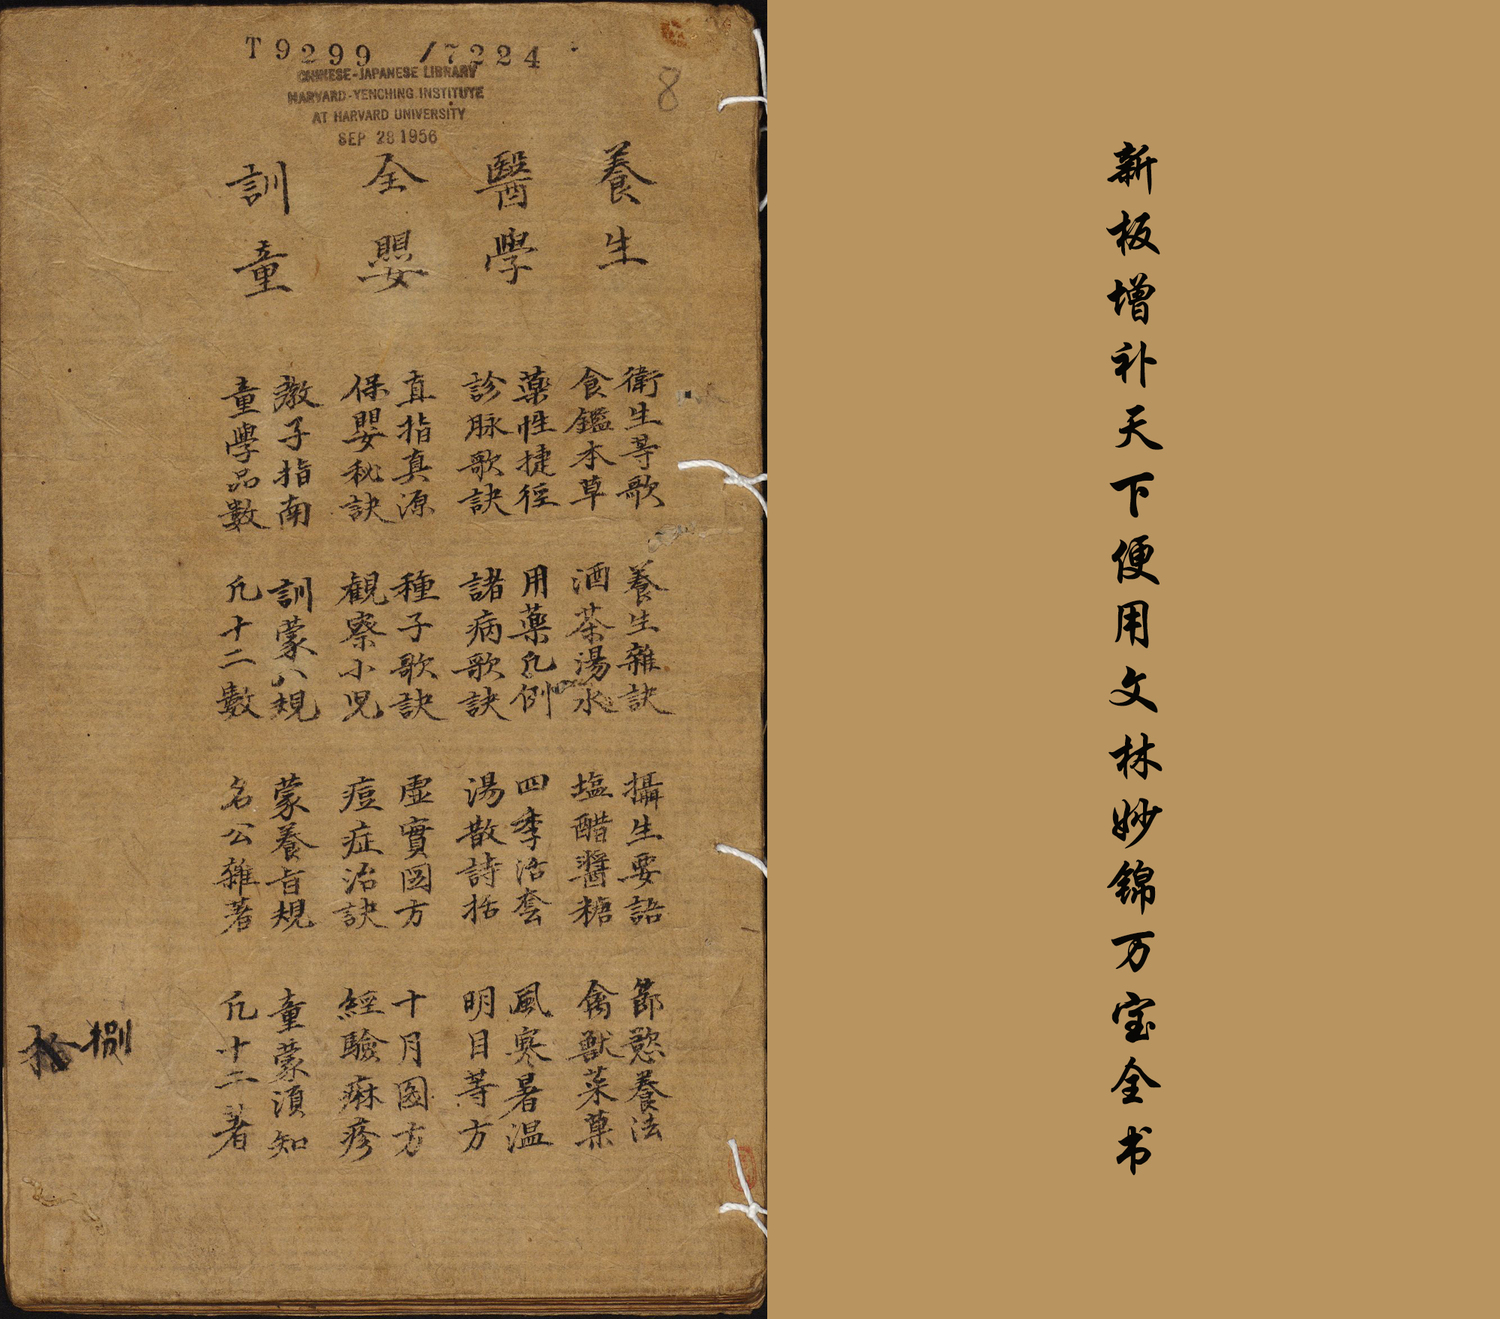 新板增补天下便用文林妙锦万宝全书
T9299 /7224
CHINESE-JAPANESE LIBRARY
HARVARD-YENCHING INSTITUTE
AT HARVARD UNIVERSITY
SEP 28 1956
8
養生
衛生等歌 養生雜訣 攝生要語 節慾養法
食鑑本草 酒茶湯水 塩醋醬糖 禽獸菜菓
醫學
藥性捷徑 用藥凡例 四季活套 風寒暑温
診脉歌訣 諸病歌訣 湯散詩括 明目等方
全嬰
直指真源 種子歌訣 虛實圖方 十月圖方
保嬰秘訣 觀察小兒 痘症治訣 經驗麻疹
訓童
教子指南 訓蒙八規 蒙養旨規 童蒙須知
童學品數 凡十二數 名公雜著 凡十二著
捌